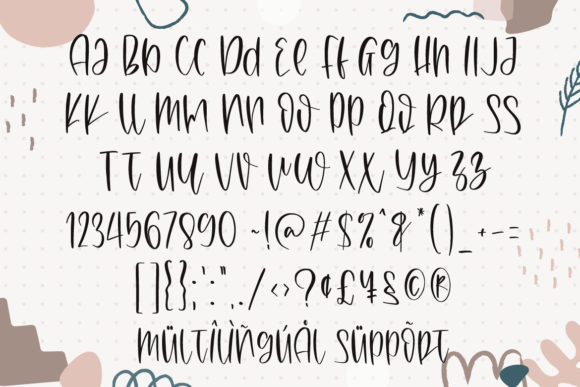 Aa Bb Cc Dd Ee Ff Gg Hh Ii Jj
Kk Ll Mm Nn Oo Pp Qq Rr Ss
Tt Uu Vv Ww Xx Yy Zz
1234567890 ~!@#$%^&*()_+-=
[]{};':",./<>?¢£¥§©®
MÜLTÎLÌÑGÚÅL SÜPPÕRT